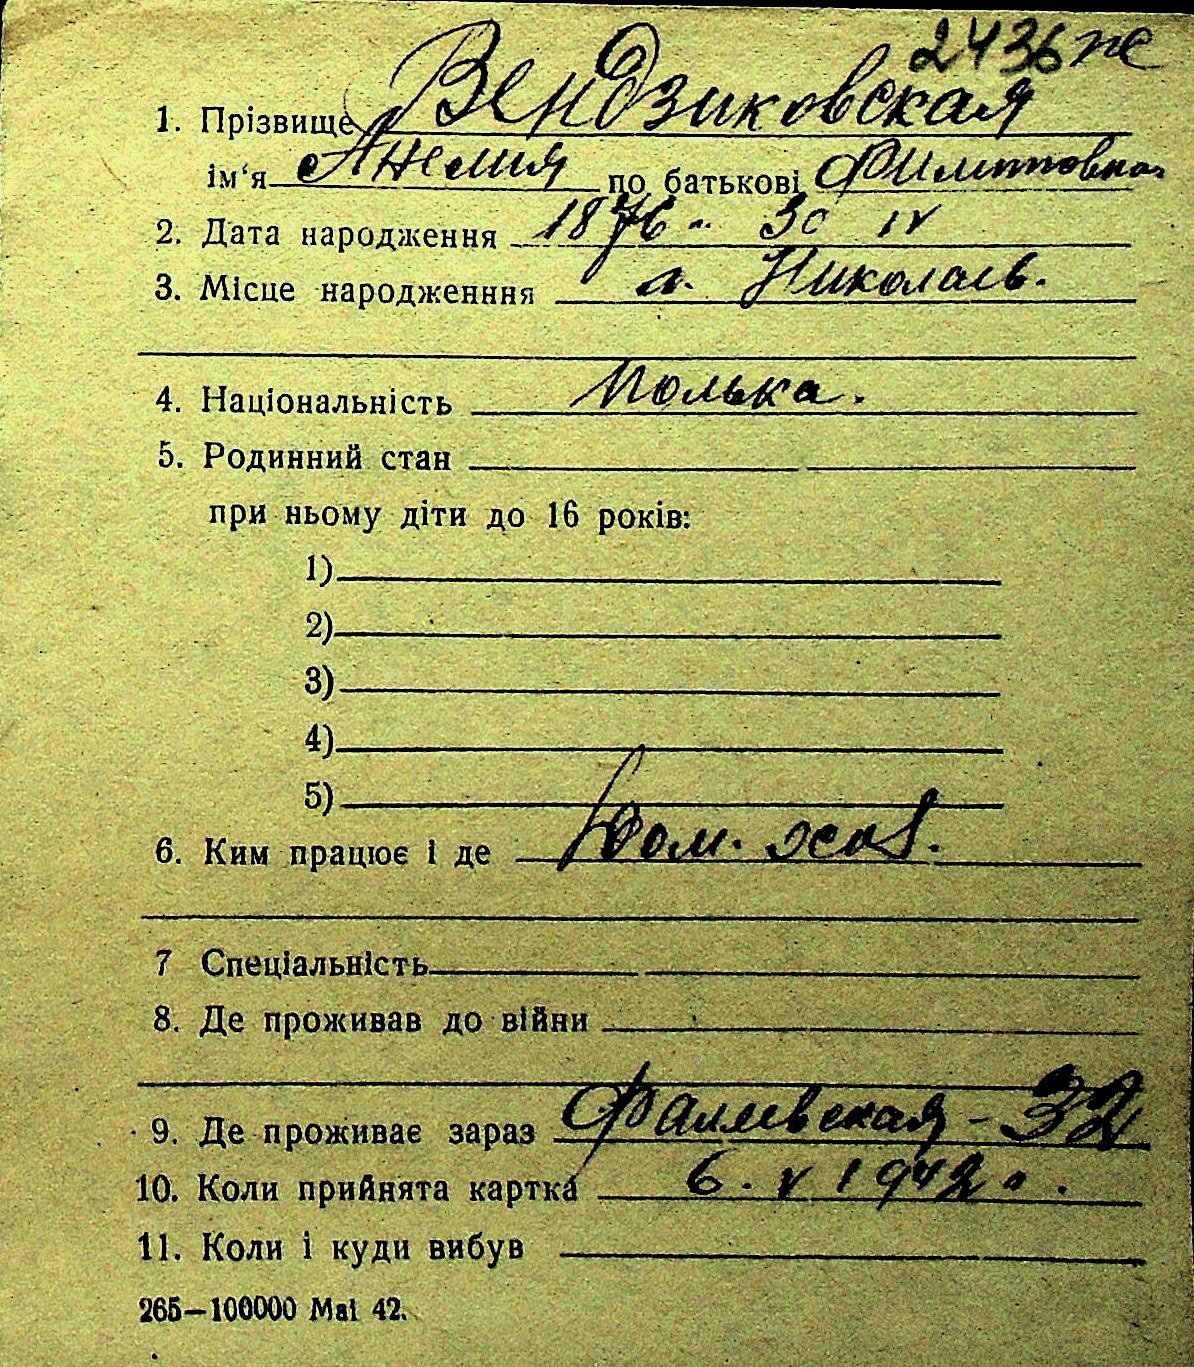 2436 же
1. Прізвище Вендзиковская
ім‘я Анелия по батькові Филипповна
2. Дата народження 1876 30 IV
3. Місце народженння г. Николаев.
4. Національність Полька.
5. Родинний стан
при ньому діти до 16 років:
1)
2)
3)
4)
5)
6. Ким працює і де Дом. хоз.
7 Спеціальність
8. Де проживав до війни
9. Де проживає зараз Фалеевская - 32
10. Коли прийнята картка 6. V 1942 г.
11. Коли і куди вибув
265—100000 Mai 42.